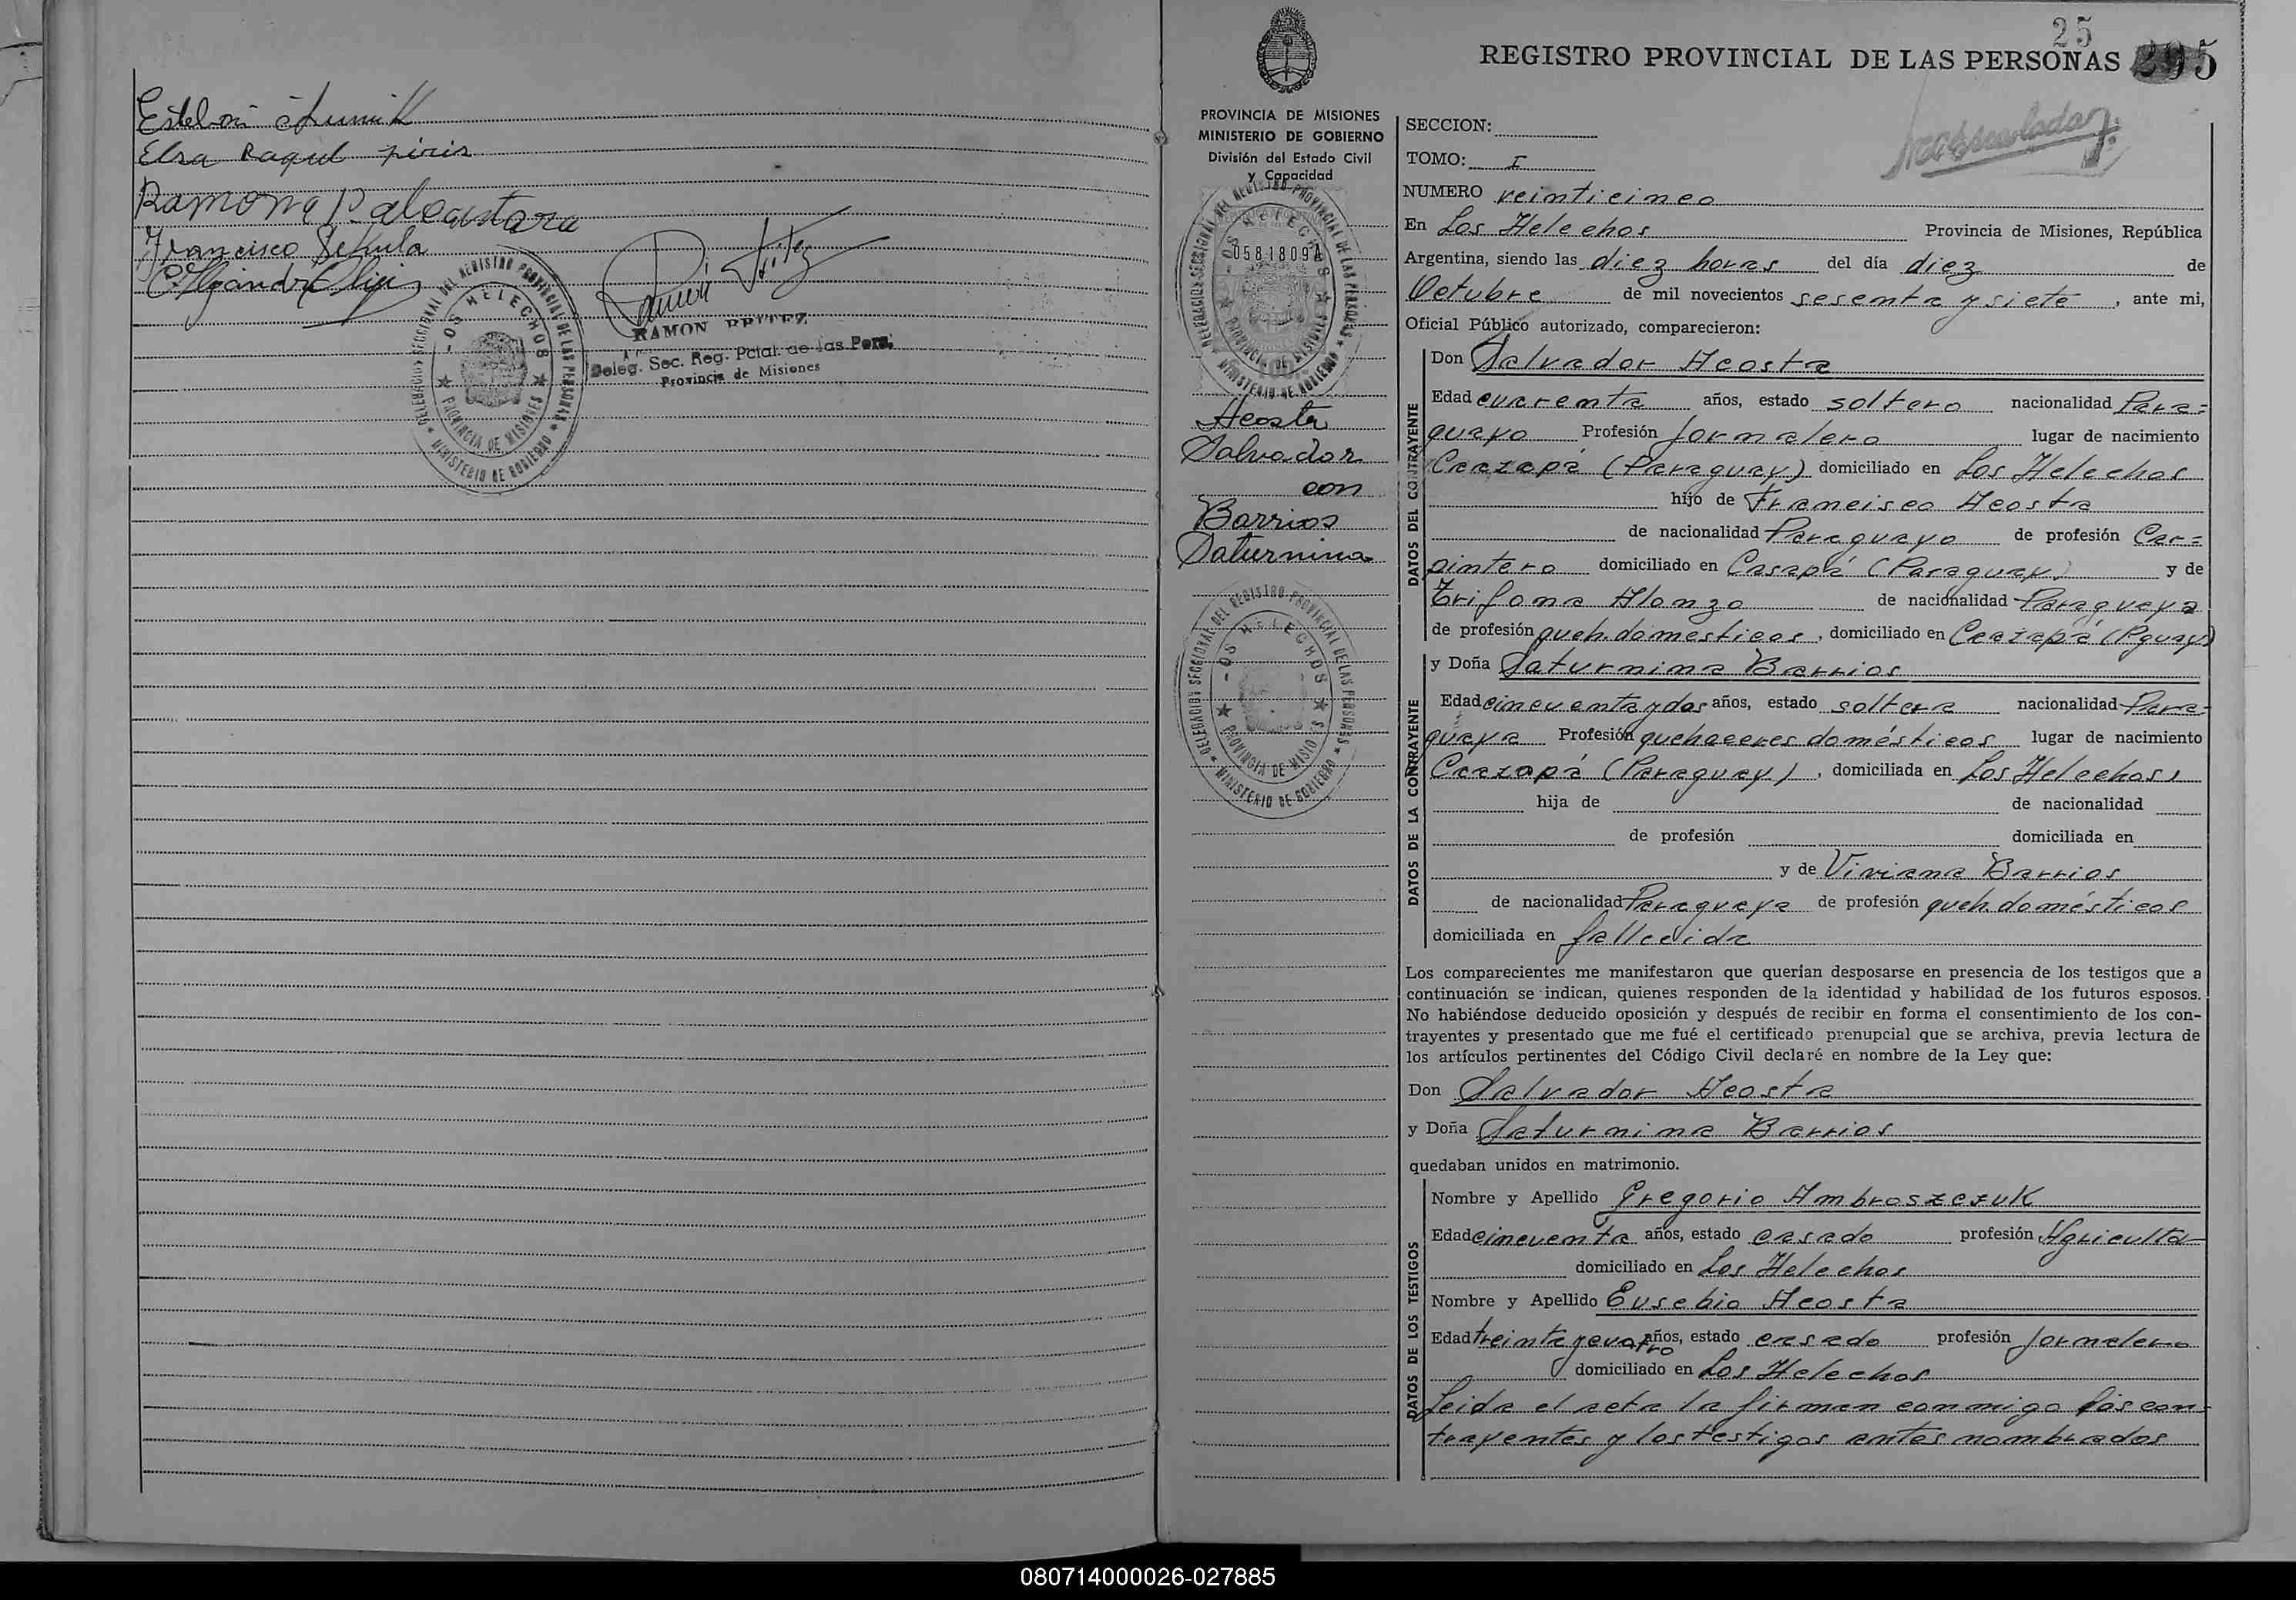 Elsa Raquel Piris
Ramona P. alcantara
Francisco
RAMON BRITEZ
Deleg. Sec. Reg. Pcial. de las Pers.
Provincia de Misiones
DELEGACION SECCIONAL DEL REGISTRO PROVINCIAL DE LAS PERSONAS
LOS HELECHOS
PROVINCIA DE MISIONES
MINISTERIO DE GOBIERNO
25
REGISTRO PROVINCIAL DE LAS PERSONAS
PROVINCIA DE MISIONES
MINISTERIO DE GOBIERNO
División del Estado Civil
y Capacidad
0581809A
DELEGACION SECCIONAL DEL REGISTRO PROVINCIAL DE LAS PERSONAS
LOS HELECHOS
PROVINCIA DE MISIONES
MINISTERIO DE GOBIERNO
Acosta
Salvador
con
Barrios
Saturnina
DELEGACION SECCIONAL DEL REGISTRO PROVINCIAL DE LAS PERSONAS
LOS HELECHOS
PROVINCIA DE MISIONES
MINISTERIO DE GOBIERNO
SECCION:
TOMO: I
NUMERO veinticinco
En Los Helechos Provincia de Misiones, República
Argentina, siendo las diez horas del día diez de
Octubre de mil novecientos sesenta y siete, ante mi,
Oficial Público autorizado, comparecieron:
DATOS DEL CONTRAYENTE
Don Salvador Acosta
Edad cuarenta años, estado soltero nacionalidad Para=
guayo Profesión Jornalero lugar de nacimiento
Caazapá (Paraguay) domiciliado en Los Helechos
hijo de Francisco Acosta
de nacionalidad Paraguayo de profesión Car=
pintero domiciliado en Casapá (Paraguay) y de
Trifona Alonzo de nacionalidad Paraguaya
de profesión queh. domesticos, domiciliado en Caazapá (Pguay)
DATOS DE LA CONTRAYENTE
y Doña Saturnina Barrios
Edad cincuenta y dos años, estado soltera nacionalidad Para-
guaya Profesión quehaceres domésticos lugar de nacimiento
Caazapá (Paraguay), domiciliada en Los Helechos,
hija de de nacionalidad
de profesión domiciliada en
y de Viviana Barrios
de nacionalidad Paraguaya de profesión queh. domésticos
domiciliada en fallecida
Los comparecientes me manifestaron que querían desposarse en presencia de los testigos que a
continuación se indican, quienes responden de la identidad y habilidad de los futuros esposos.
No habiéndose deducido oposición y después de recibir en forma el consentimiento de los con-
trayentes y presentado que me fué el certificado prenupcial que se archiva, previa lectura de
los artículos pertinentes del Código Civil declaré en nombre de la Ley que:
Don Salvador Acosta
y Doña Saturnina Barrios
quedaban unidos en matrimonio.
DATOS DE LOS TESTIGOS
Nombre y Apellido Gregorio Ambroszczuk
Edad cincuenta años, estado casado profesión Agricultor
domiciliado en Los Helechos
Nombre y Apellido Eusebio Acosta
Edad treinta y cuatro años, estado casado profesión Jornalero
domiciliado en Los Helechos
Leida el acta la firman conmigo los con-
trayentes y los testigos antes nombrados
080714000026-027885